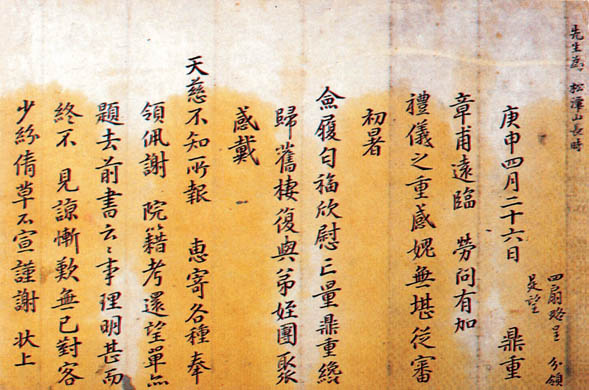 先生爲 松潭山長時
四扇略呈 分領
是望
庚申四月二十六日 鼎重
章甫遠臨 勞問有加
禮儀之重感媿無堪從審
初暑
僉履匀福欣慰亡量鼎重纔
歸舊棲復與弟姪團聚
感戴
天慈不知所報 惠寄各種奉
領佩謝 院籍考還望單亦
題去前書云〻事理明甚而
終不 見諒慚歎無已對客
少紛倩草不宣謹謝 狀上